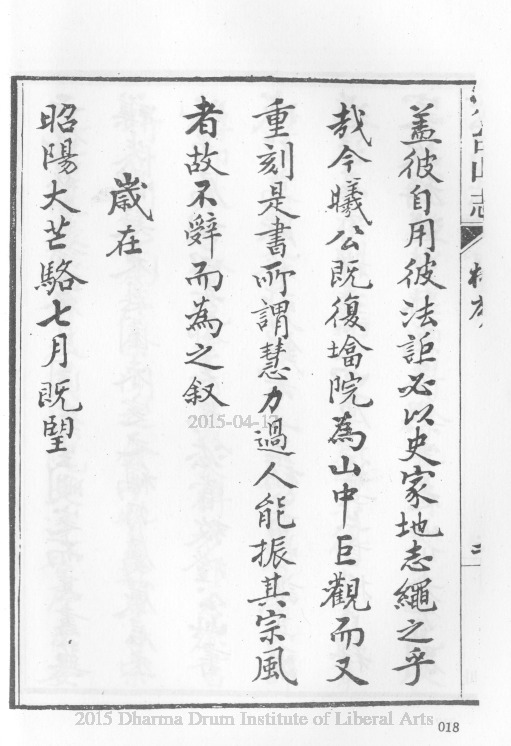 蓋彼自用彼法詎必以史家地志繩之乎
哉今曦公既復墖院為山中巨觀而又
重刻是書所謂慧力過人能振其宗風
者故不辭而為之叙
歲在
昭陽大芒駱七月既望
2015-04-17
2015 Dharma Drum Institute of Liberal Arts
018